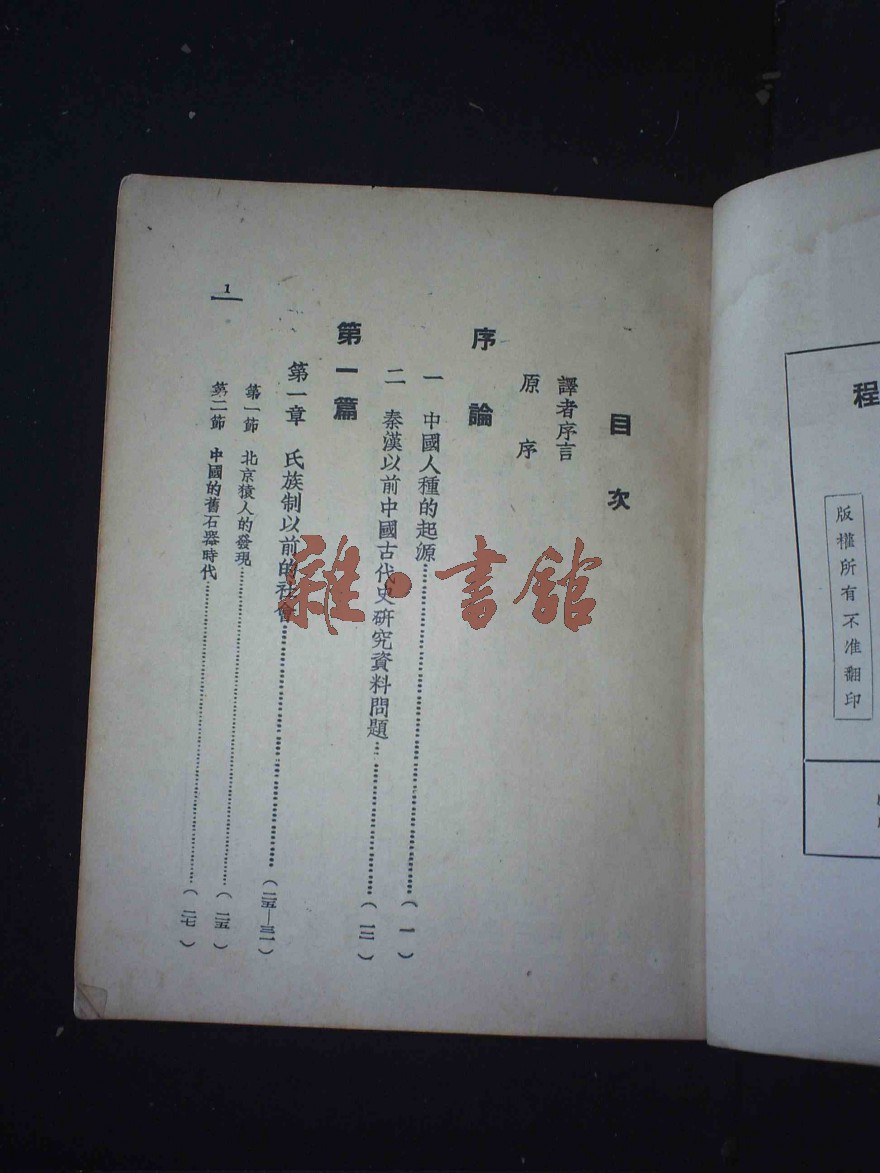 程
版權所有不准翻印
目次
譯者序言
原序
序論
一 中國人種的起源……(一)
二 秦漢以前中國古代史研究資料問題……(一二)
第一篇
第一章 氏族制以前的社會……(二五—三一)
第一節 北京猿人的發現……(二五)
第二節 中國的舊石器時代……(二七)
1
雜·書館